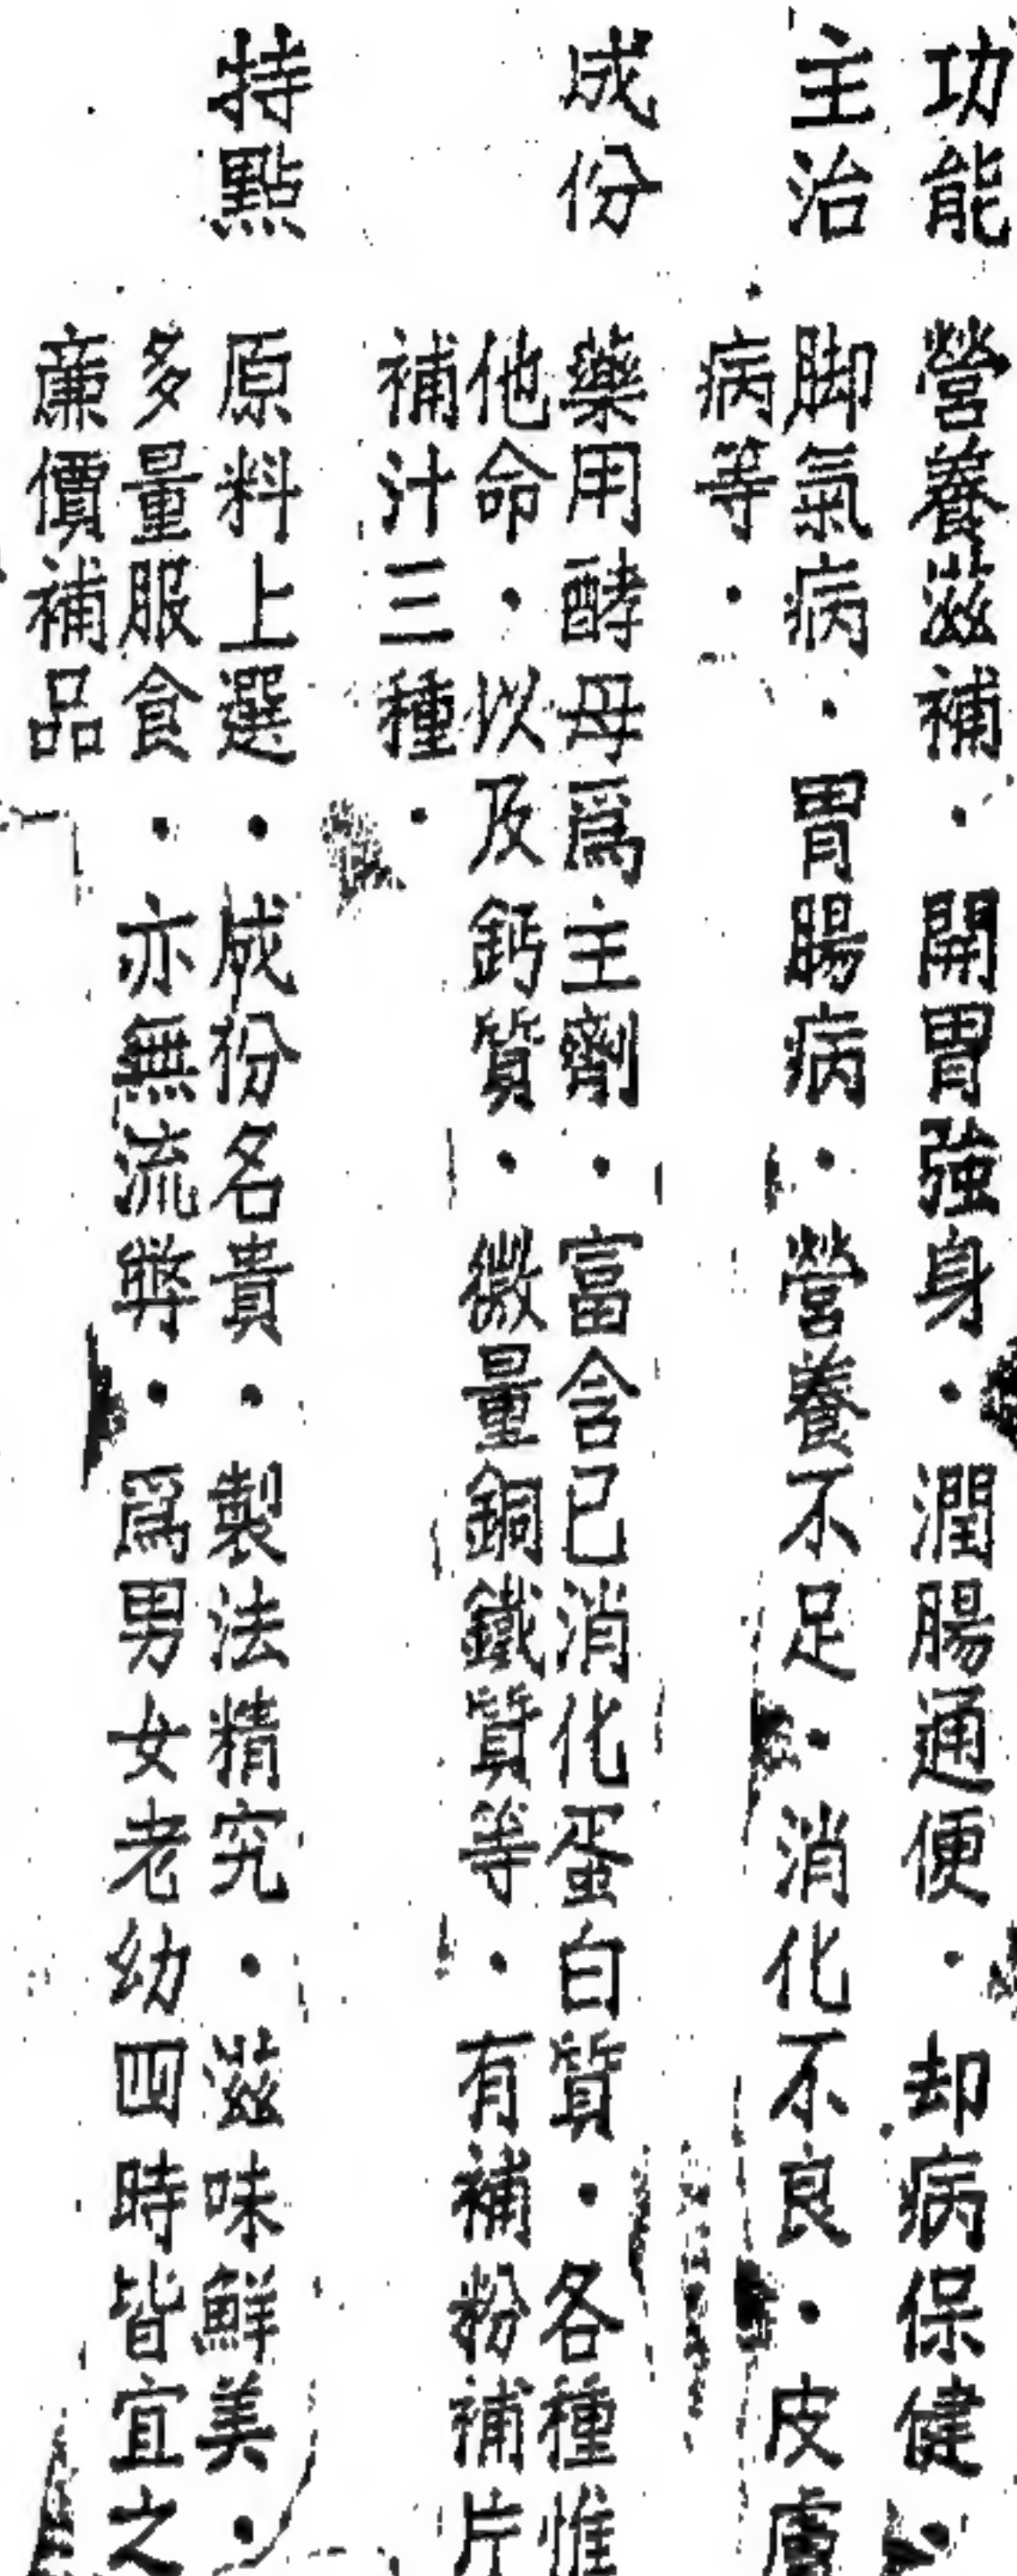 功能　營養滋補・開胃強身・潤腸通便・却病保健・
主治　脚氣病・胃腸病・營養不足・消化不良・皮膚
病等・
成份　藥用酵母爲主劑・富含已消化蛋白質・各種惟
他命・以及鈣質・微量銅鐵質等・有補粉補片
補汁三種・
特點　原料上選・成份名貴・製法精究・滋味鮮美・
多量服食・亦無流弊・爲男女老幼四時皆宜之
亷價補品